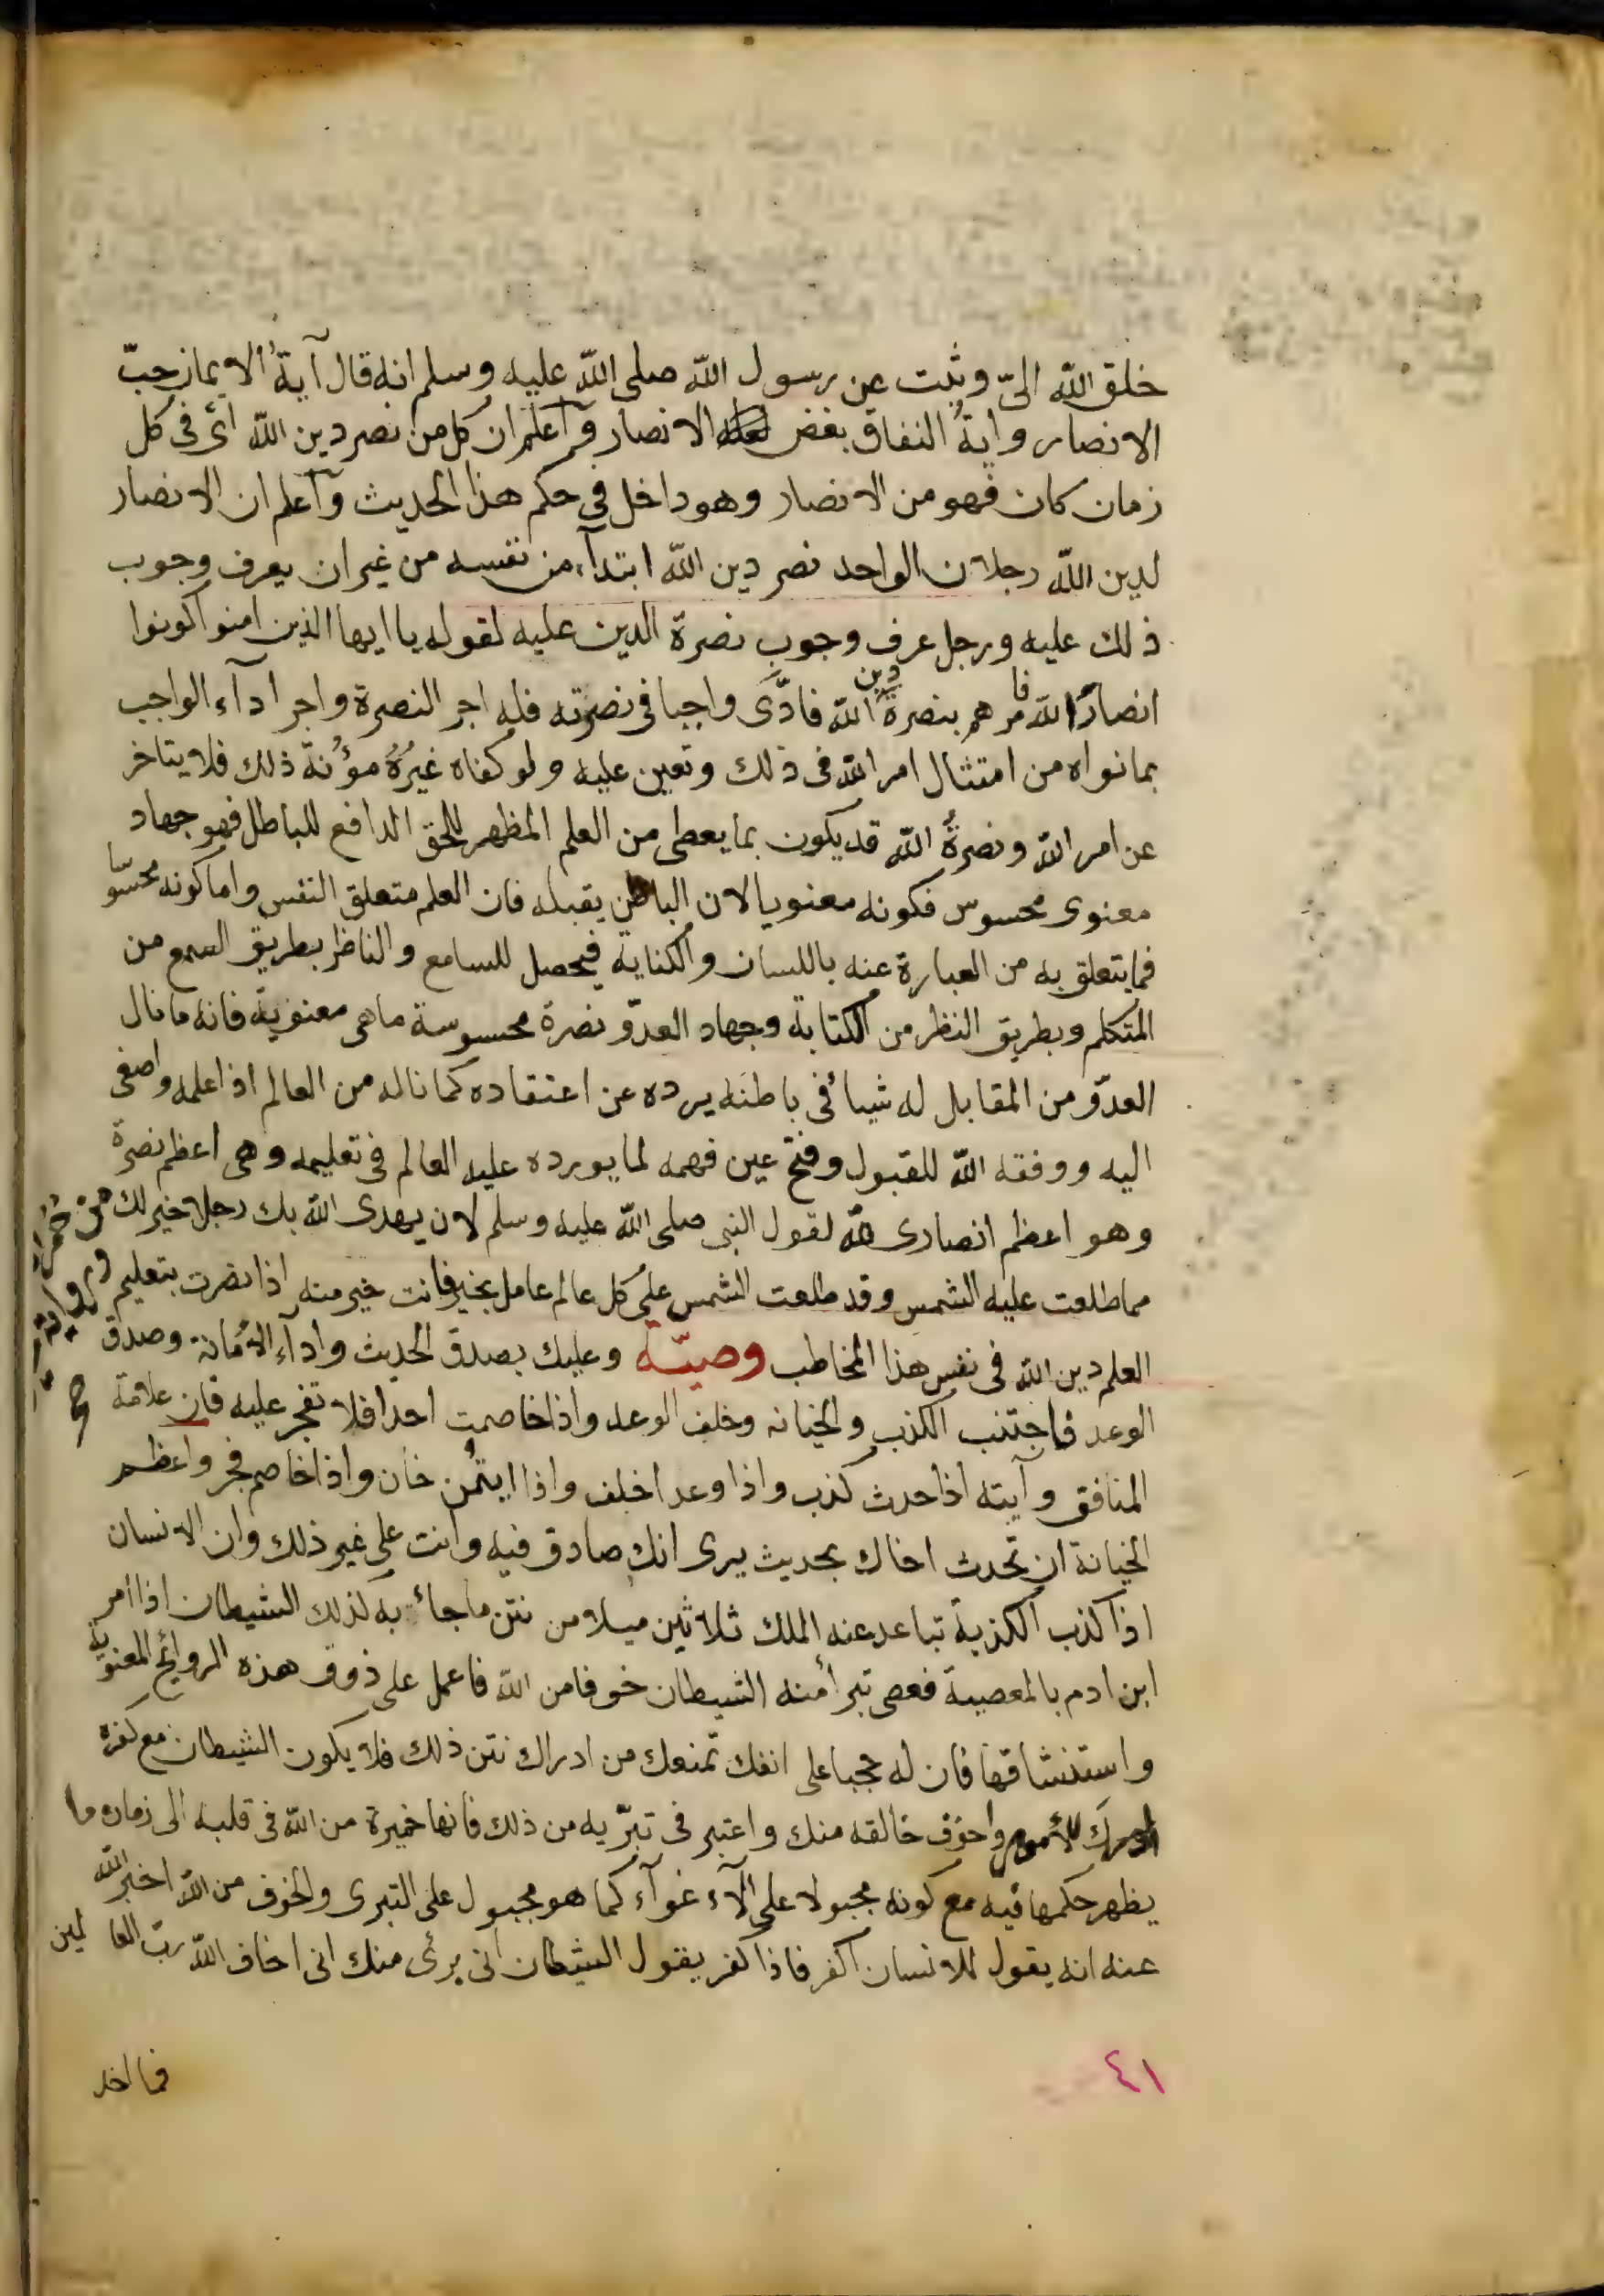 خلق الله الىّ وثبت عن رسول الله صلى الله عليه وسلم انه قال آيةُ الايمان حبّ
الانصار وايةُ النفاق بغض الانصار وآعلم ان كل من نصر دين الله اىّ فى كل
زمان كان فهو من الانصار وهو داخل فى حكم هذا الحديث وآعلم ان الانصار
لدين الله رجلان الواحد نصر دين الله ابتدآء من نفسه من غير ان يعرف وجوب
ذلك عليه ورجل عرف وجوب نصرة الدين عليه لقوله يا ايها الذين امنوا كونوا
انصارًا لله فامرهم بنصرة دين الله فادَّى واجبا فى نصرته فله اجر النصرة واجر ادآء الواجب
بما نواه من امتثال امر الله فى ذلك وتعين عليه ولو كفاه غيرُهُ مؤُنة ذلك فلا يتاخر
عن امر الله ونصرةُ الله قد يكون بما يعطى من العلم المظهر للحق الدافع للباطل فهو جهاد
معنوى محسوس فكونه معنويا لان الباطن يقبله فان العلم متعلق النفس واما كونه محسّوسا
فما يتعلق به من العبارة عنه باللسان والكناية فيحصل للسامع والناظر بطريق السمع من
المتكلم وبطريق النظر من الكتابة وجهاد العدوّ نصرة محسوسة ما هى معنوية فانه ما نال
العدوّ من المقابل له شيأ فى باطنه يرده عن اعتقاده كما ناله من العالم اذا علمه واصغى
اليه ووفقه الله للقبول وفتح عين فهمه لما يورده عليه العالم فى تعليمه وهى اعظم نصرة
وهو اعظم انصارى لله لقول النبى صلى الله عليه وسلم لان يهدى الله بك رجلا خير لك من حُمر
مما طلعت عليه الشمس وقد طلعت الشمس على كل عالم عامل بخير فانت خير منه اذا نصرت بتعليم
العلم دين الله فى نفس هذا المخاطب وصيّة وعليك بصدق الحديث وادآء الأمانة وصدق
الوعد فاجتنب الكذب والخيانه وخلف الوعد واذا خاصمت احدا فلا تفجر عليه فان علامة
المنافق وآيته اذا حدث كذب واذا وعد اخلف واذا ايتُمن خان واذا خاصم فجر واعظم
الخيانة ان تحدث اخاك بحديث يرى انك صادق فيه وانت على غير ذلك وان الانسان
اذا كذب الكذبة تباعد عنه الملك ثلاثين ميلا من نتن ما جائت به كذلك الشيطان اذا امر
ابن ادم بالمعصية فعصى تبرأ منه الشيطان خوفا من الله فاعمل على ذوق هذه الروائح المعنوية
واستنشاقها فان له حجبا على انفك تمنعك من ادراك نتن ذلك فلا يكون الشيطان مع كفره
ادرك للأمور واخوف خالقه منك واعتبر فى تبرّيه من ذلك فانها خميرة من الله فى قلبه الى زمان ما
يظهر حكمها فيه مع كونه مجبولا على الآغوآء كما هو مجبول على التبرى والخوف من الله اخبر الله
عنه انه يقول للانسان اكفر فاذا كفر يقول الشيطان انى برئى منك انى اخاف الله رب العالمين
فما اخذ
٤١